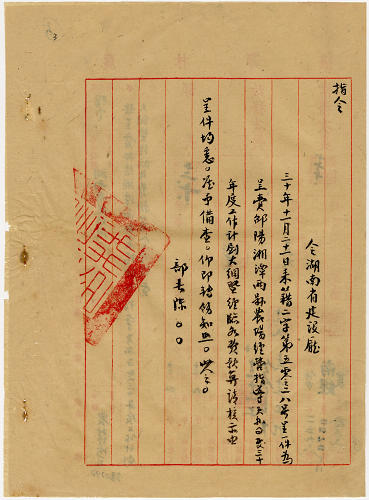 指令
令湖南省建設廳
三十年十一月二十一日禾籍二字第五零三八号呈一件為
呈賫邵陽湘潭兩縣農場經營指導
年度工作計劃大綱暨經臨各費預算請核示由
呈件均悉。准予備查。仰即轉飭知照。此令。
部長陳〇〇
3